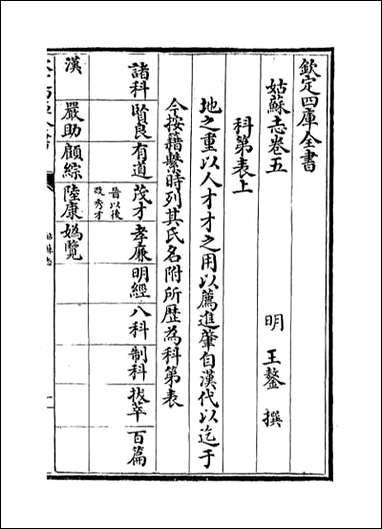 欽定四庫全書
姑蘇志卷五
明 王鏊 撰
科第表上
地之重以人才才之用以薦進肇自漢代以迄于
今按籍繫時列其氏名附所歷為科第表
諸科 賢良 有道 茂才 晉以後改秀才 孝廉 明經 八科 制科 拔萃 百篇
漢 嚴助 顧綜 陸康 媯覽